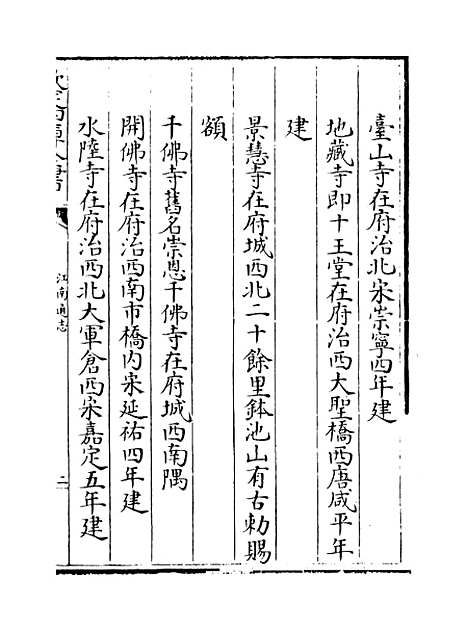 臺山寺在府治北宋崇寧四年建
地藏寺即十王堂在府治西大聖橋西唐咸平年
建
景慧寺在府城西北二十餘里鉢池山有古勅賜
額
千佛寺舊名崇恩千佛寺在府城西南隅
開佛寺在府治西南市橋内宋延祐四年建
水陸寺在府治西北大軍倉西宋嘉定五年建
江南通志
二